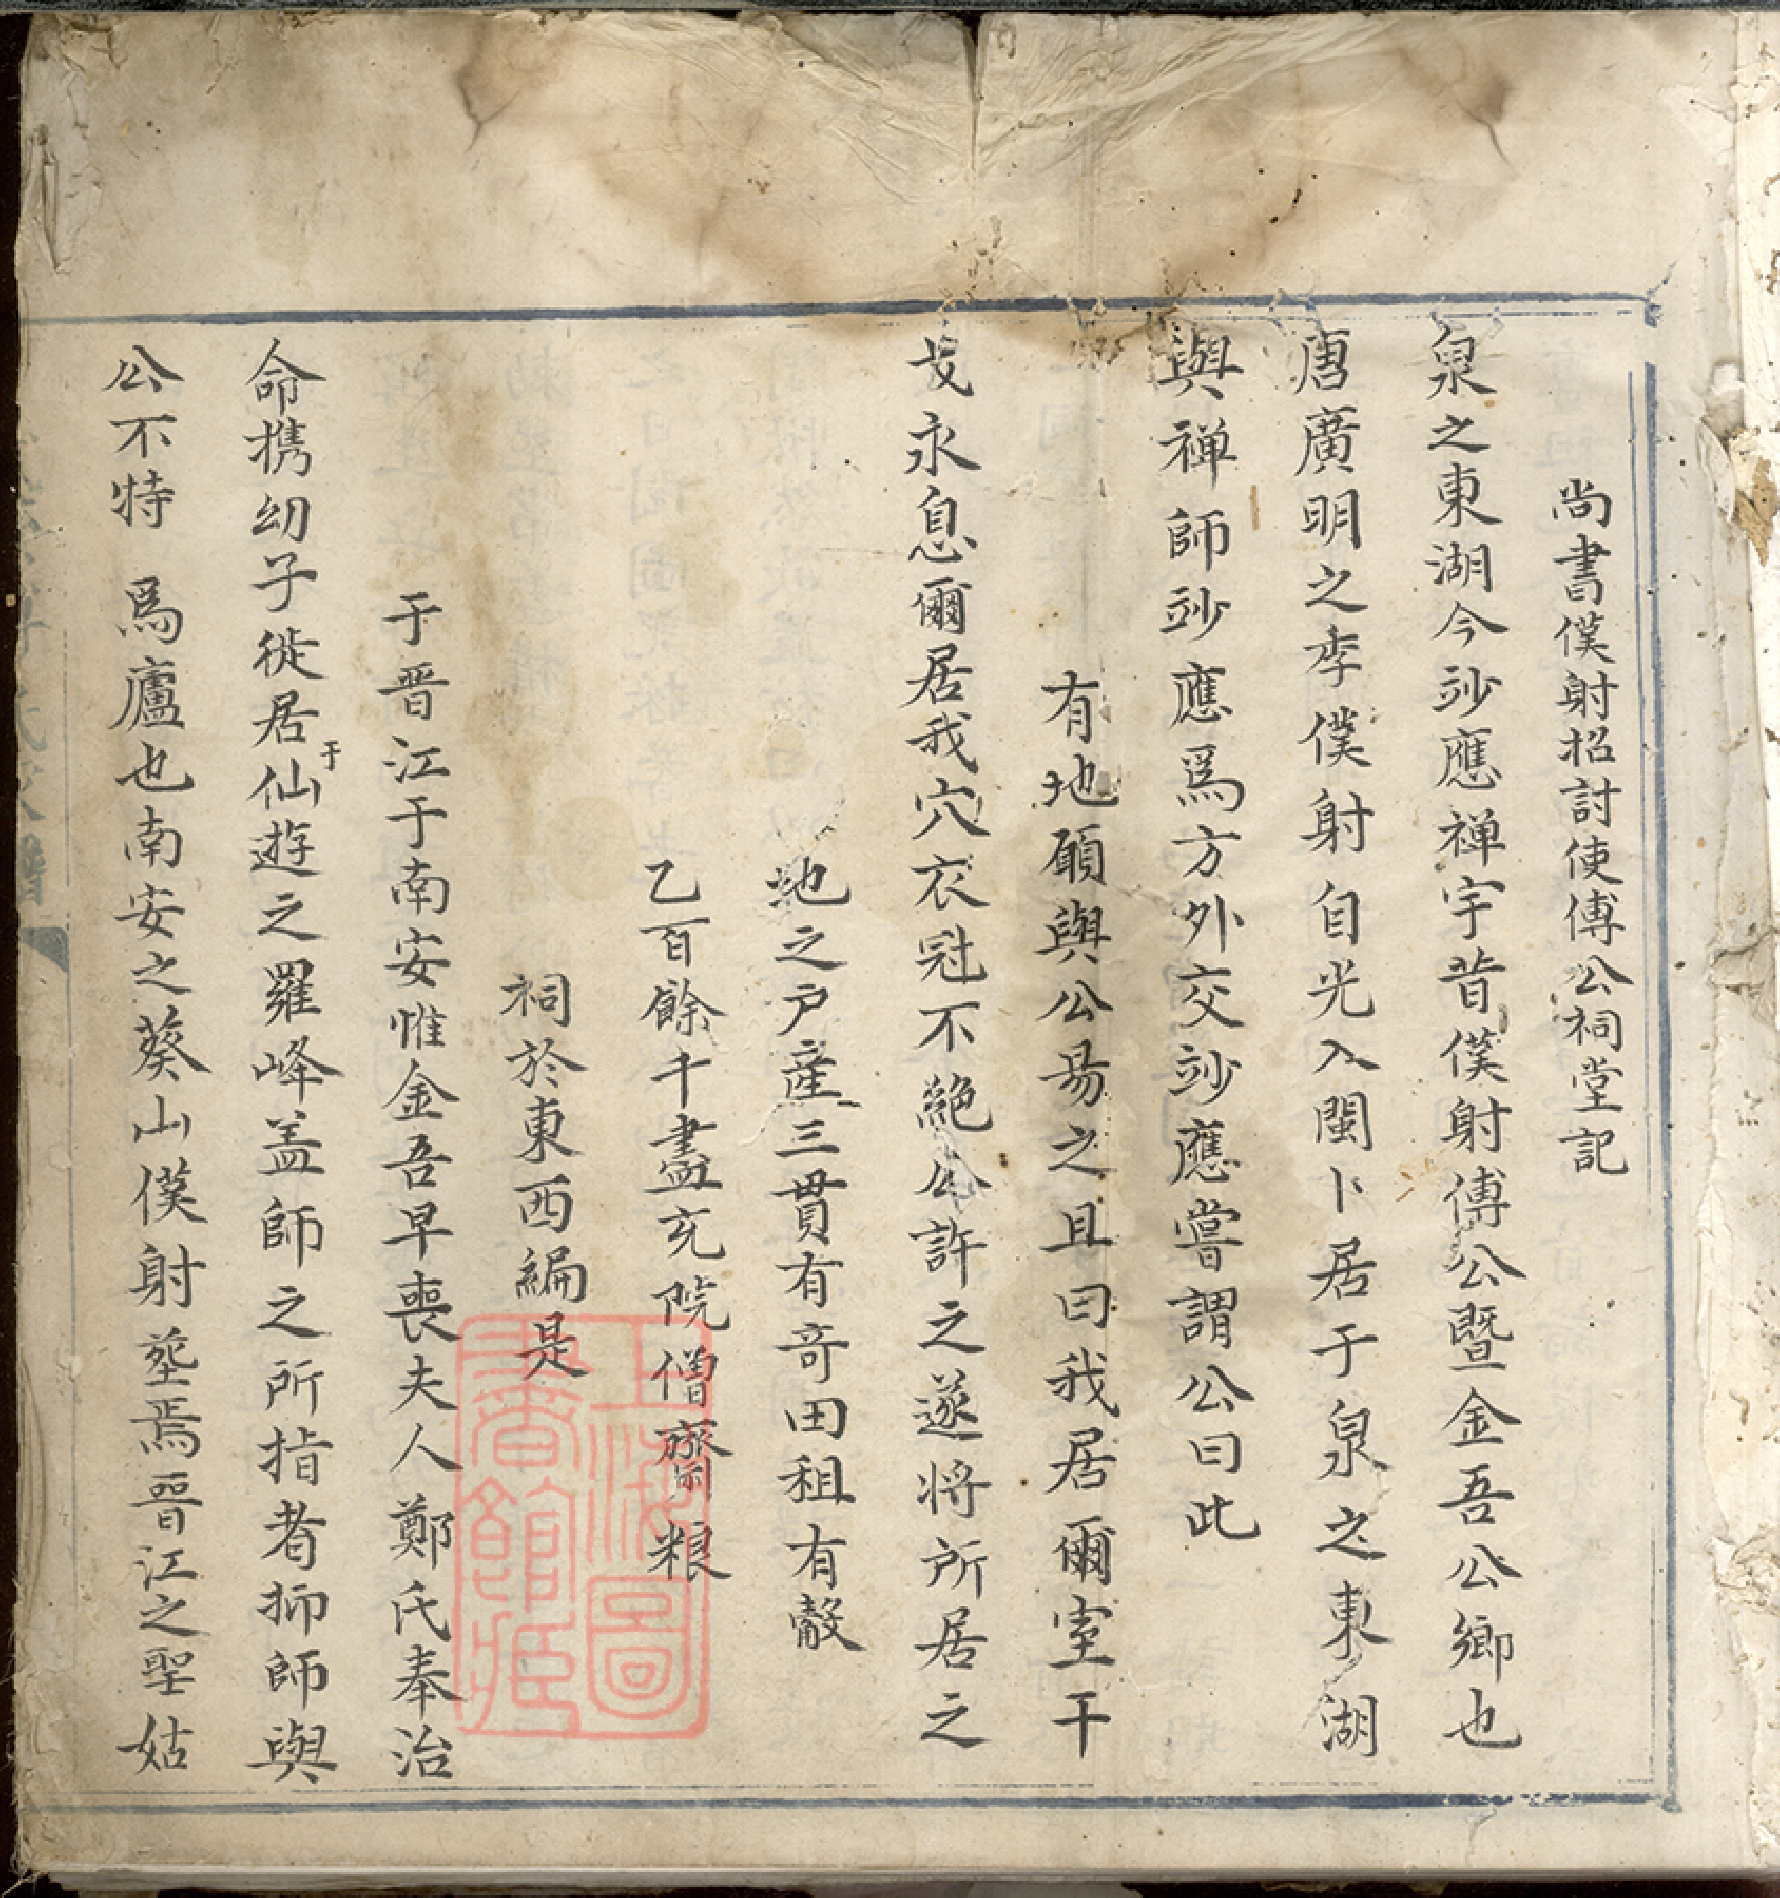 尚書僕射招討使傅公祠堂記
泉之東湖今玅應禅宇昔僕射傅公暨金吾公鄉也
唐廣明之季僕射自光入閩卜居于泉之東湖
與禅師玅應爲方外交玅應嘗謂公曰此
有地願與公易之且曰我居爾室干
戈永息爾居我穴衣冠不絶公許之遂将所居之
地之户産三貫有竒田租有
乙百餘千盡充院僧齋粮
祠於東西編是
于晋江于南安惟金吾早喪夫人鄭氏奉治
命携幼子徙居于仙遊之羅峰盖師之所指者抑師與
公不特 爲廬也南安之葵山僕射塟焉晋江之聖姑
上海圖書館藏